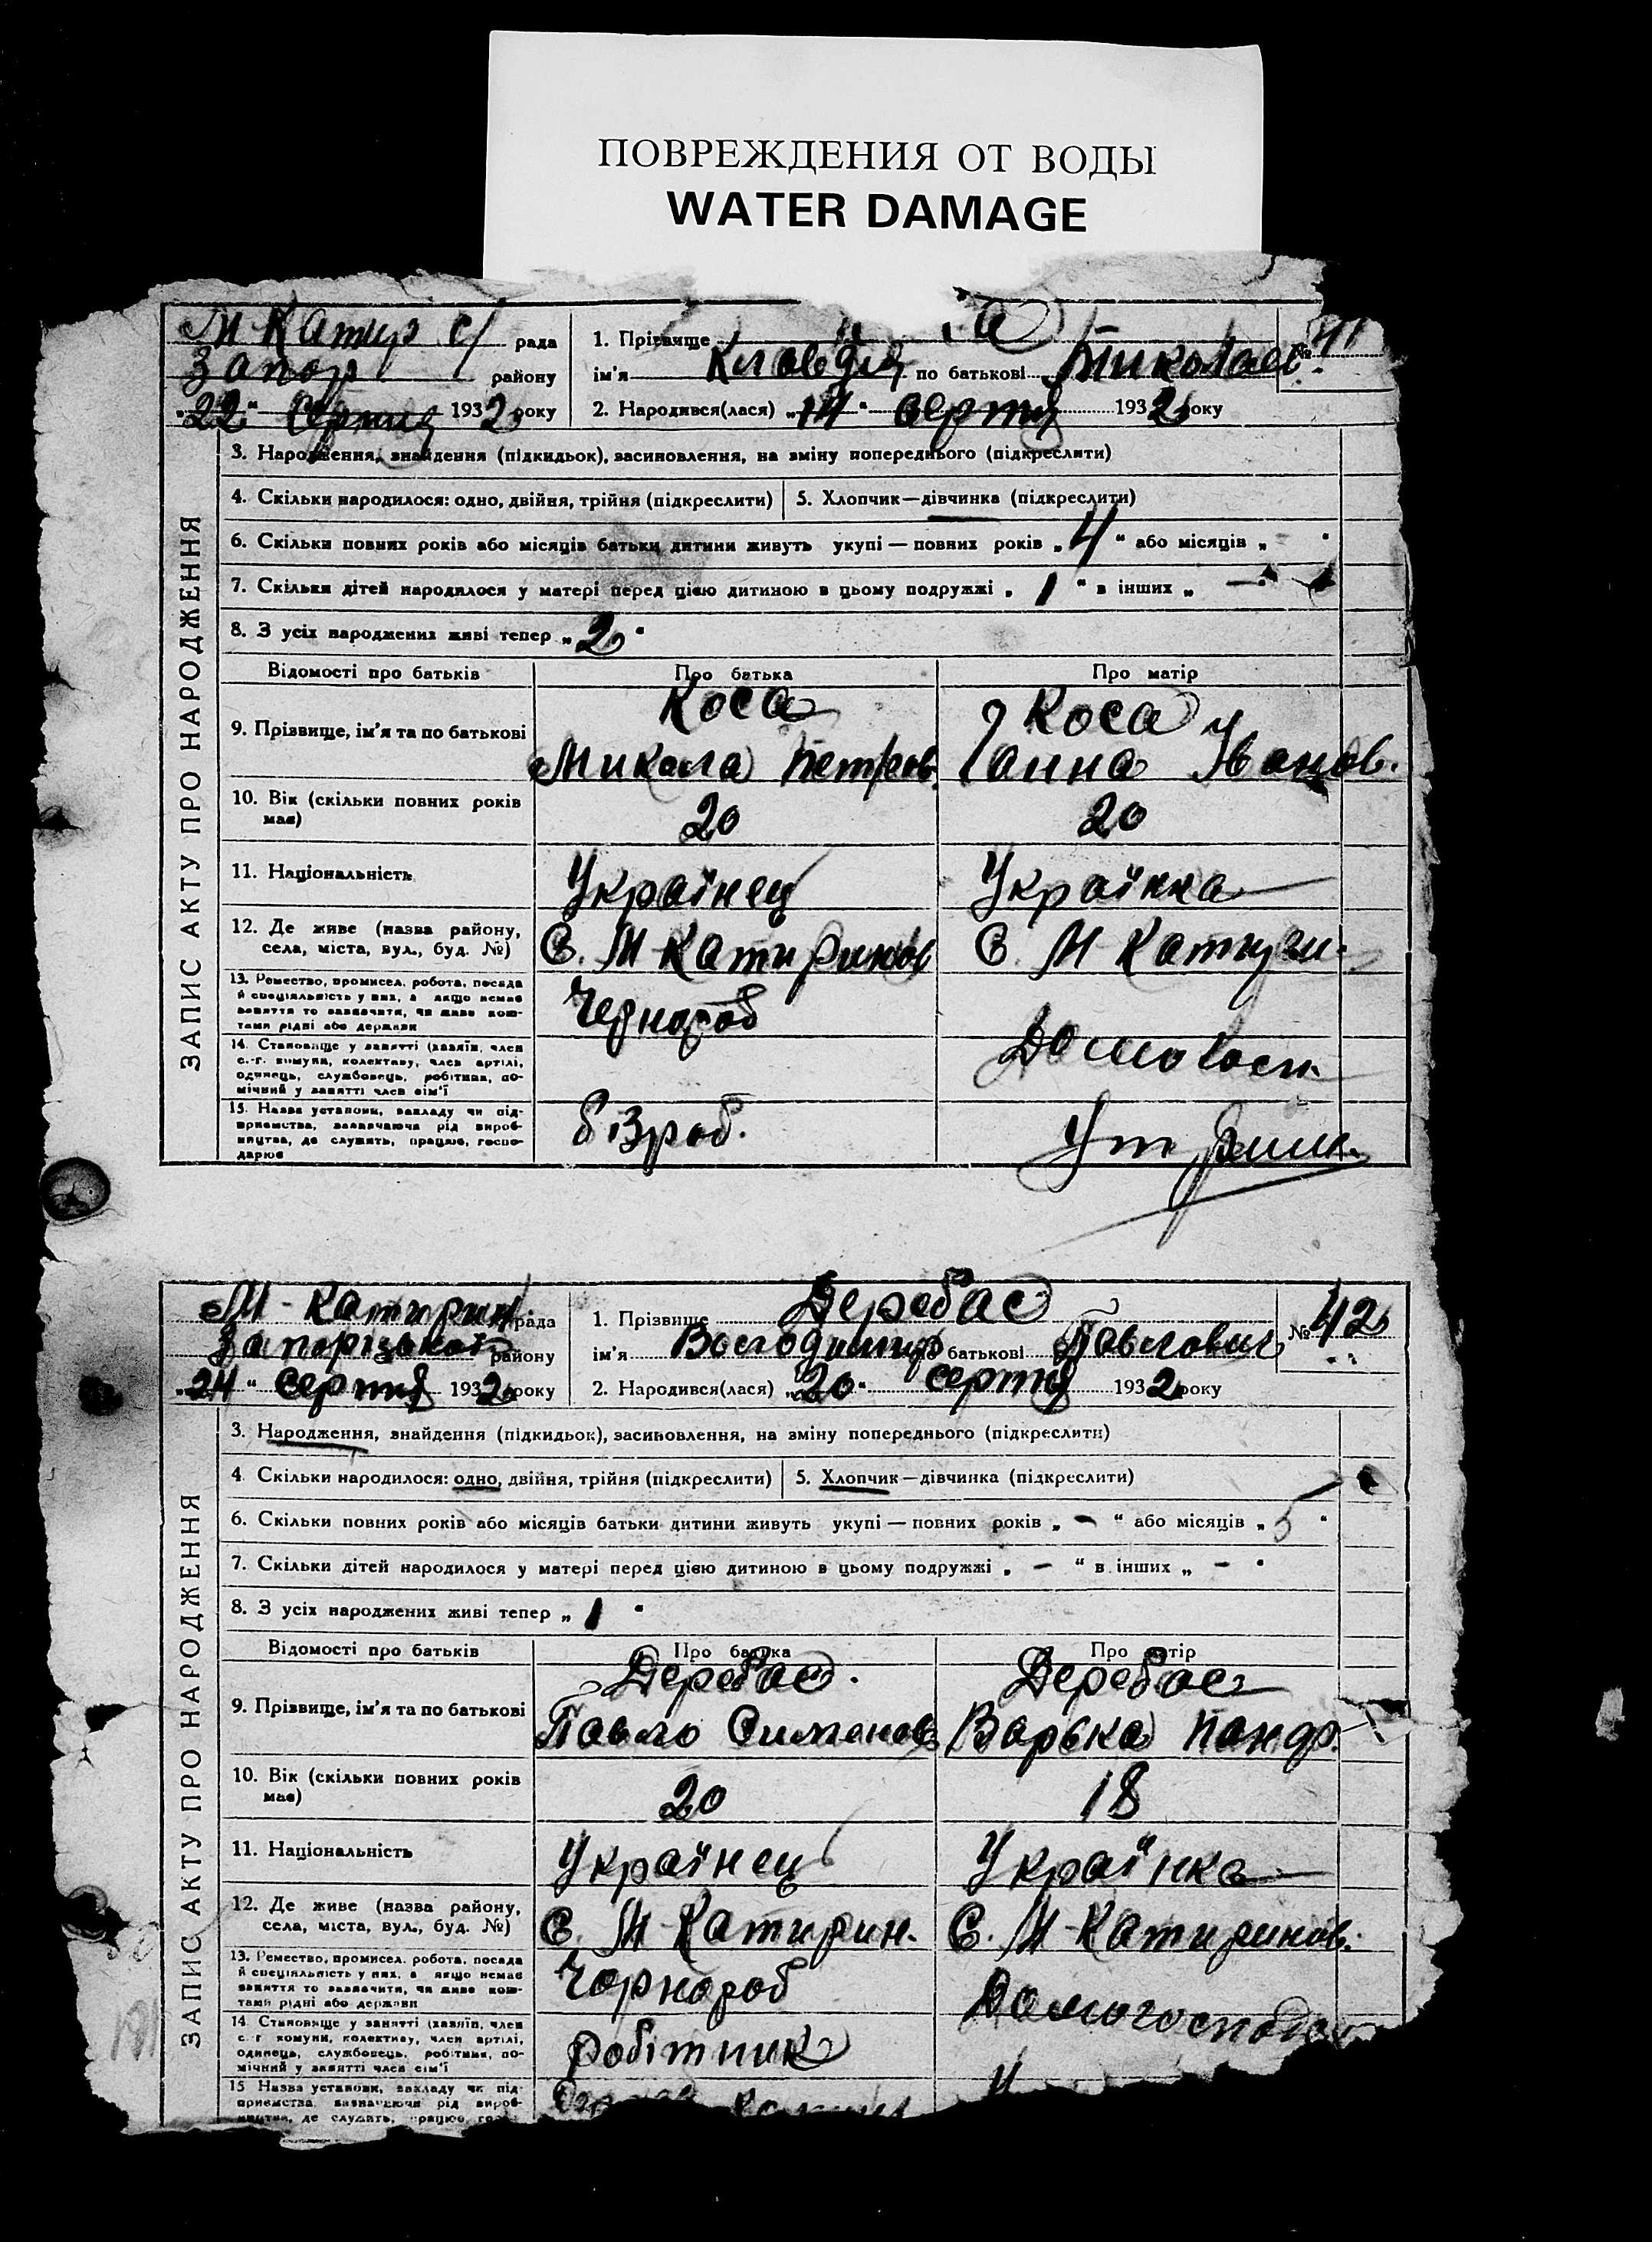 ПОВРЕЖДЕНИЯ ОТ ВОДЫ
WATER DAMAGE
М Катир с/ рада
Запор району
„22“ Серпня 1932 року
1. Прізвище
ім'я Клавдія по батькові Миколаев.
№ 41
2. Народився(лася) „14“ серпня 1932 року
ЗАПИС АКТУ ПРО НАРОДЖЕННЯ
3. Народження, знайдення (підкидьок), засиновлення, на зміну попереднього (підкреслити)
4. Скільки народилося: одно, двійня, трійня (підкреслити) 5. Хлопчик—дівчинка (підкреслити)
6. Скільки повних років або місяців батьки дитини живуть укупі — повних років „4“ або місяців „-“
7. Скільки дітей народилося у матері перед цією дитиною в цьому подружжі „1“ в інших „—“
8. З усіх народжених живі тепер „2“
Відомості про батьків Про батька Про матір
9. Прізвище, ім'я та по батькові
Коса
Микола Петров.
Коса
Ганна Іванов.
10. Вік (скільки повних років має) 20 20
11. Національність Українец Українка
12. Де живе (назва району, села, міста, вул., буд. №) С. М Катиринов С. М
13. Ремество, промисел, робота, посада й спеціяльність у них, а якщо немає заняття то зазначити, чи живе коштами рідні або держави
Чернороб
14. Становище у занятті (хазяїн, член с.-г. комуни, колективу, член артілі, одинець, службовець, робітник, помічний у занятті член сім'ї
Домогосп.
15. Назва установи, закладу чи підприємства, зазначаючи рід виробництва, де служить, працює, господарює
бізроб.
М - Катирин. рада
Запорізького району
„24“ серпня 1932 року
1. Прізвище Деребас
ім'я Володимир по батькові Павлович
№ 42
2. Народився(лася) „20“ серпня 1932 року
ЗАПИС АКТУ ПРО НАРОДЖЕННЯ
3. Народження, знайдення (підкидьок), засиновлення, на зміну попереднього (підкреслити)
4. Скільки народилося: одно, двійня, трійня (підкреслити) 5. Хлопчик—дівчинка (підкреслити)
6. Скільки повних років або місяців батьки дитини живуть укупі — повних років „-“ або місяців „5“
7. Скільки дітей народилося у матері перед цією дитиною в цьому подружжі „-“ в інших „-“
8. З усіх народжених живі тепер „1“
Відомості про батьків Про батька Про матір
9. Прізвище, ім'я та по батькові
Деребас.
Павло Симонов
Деребас
Варька Пандр.
10. Вік (скільки повних років має) 20 18
11. Національність Українец Українка
12. Де живе (назва району, села, міста, вул., буд. №) С. М Катирин. С. М-Катиринов.
13. Ремество, промисел, робота, посада й спеціяльність у них, а якщо немає заняття то зазначити, чи живе коштами рідні або держави
Чорнороб
14. Становище у занятті (хазяїн, член с.-г. комуни, колективу, член артілі, одинець, службовець, робітник, помічний у занятті член сім'ї
робітник
15 Назва установи, закладу чи підприємства, зазначаючи рід виробництва, де служить, працює